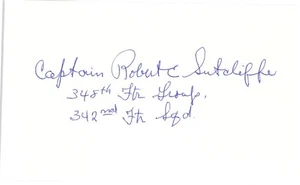 Captain Robert C Sutcliffe
348th Ftr Group.
342nd Ftr Sqd.